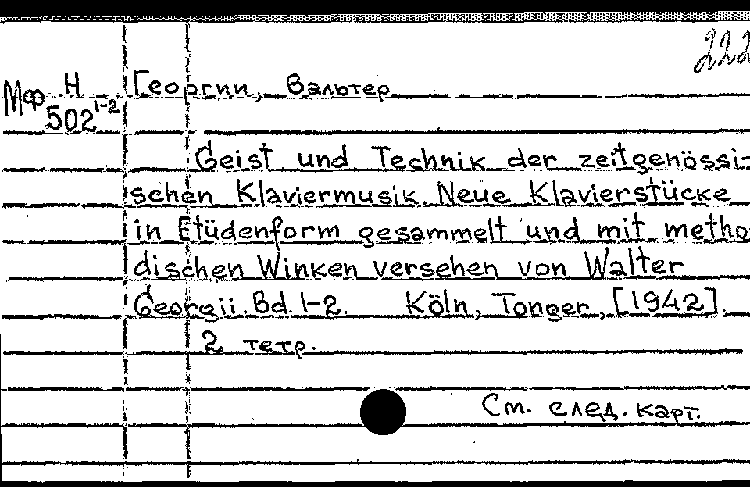 222
Мф Н Георгии, Вальтер
502 1-2
Geist und Technik der zeitgenössi-
schen Klaviermusik. Neue Klavierstücke
in Etüdenform gesammelt und mit metho
dischen Winken versehen von Walter
Georgii. Bd. 1-2. Köln, Tonger, [1942].
2 тетр.
См. след. карт.